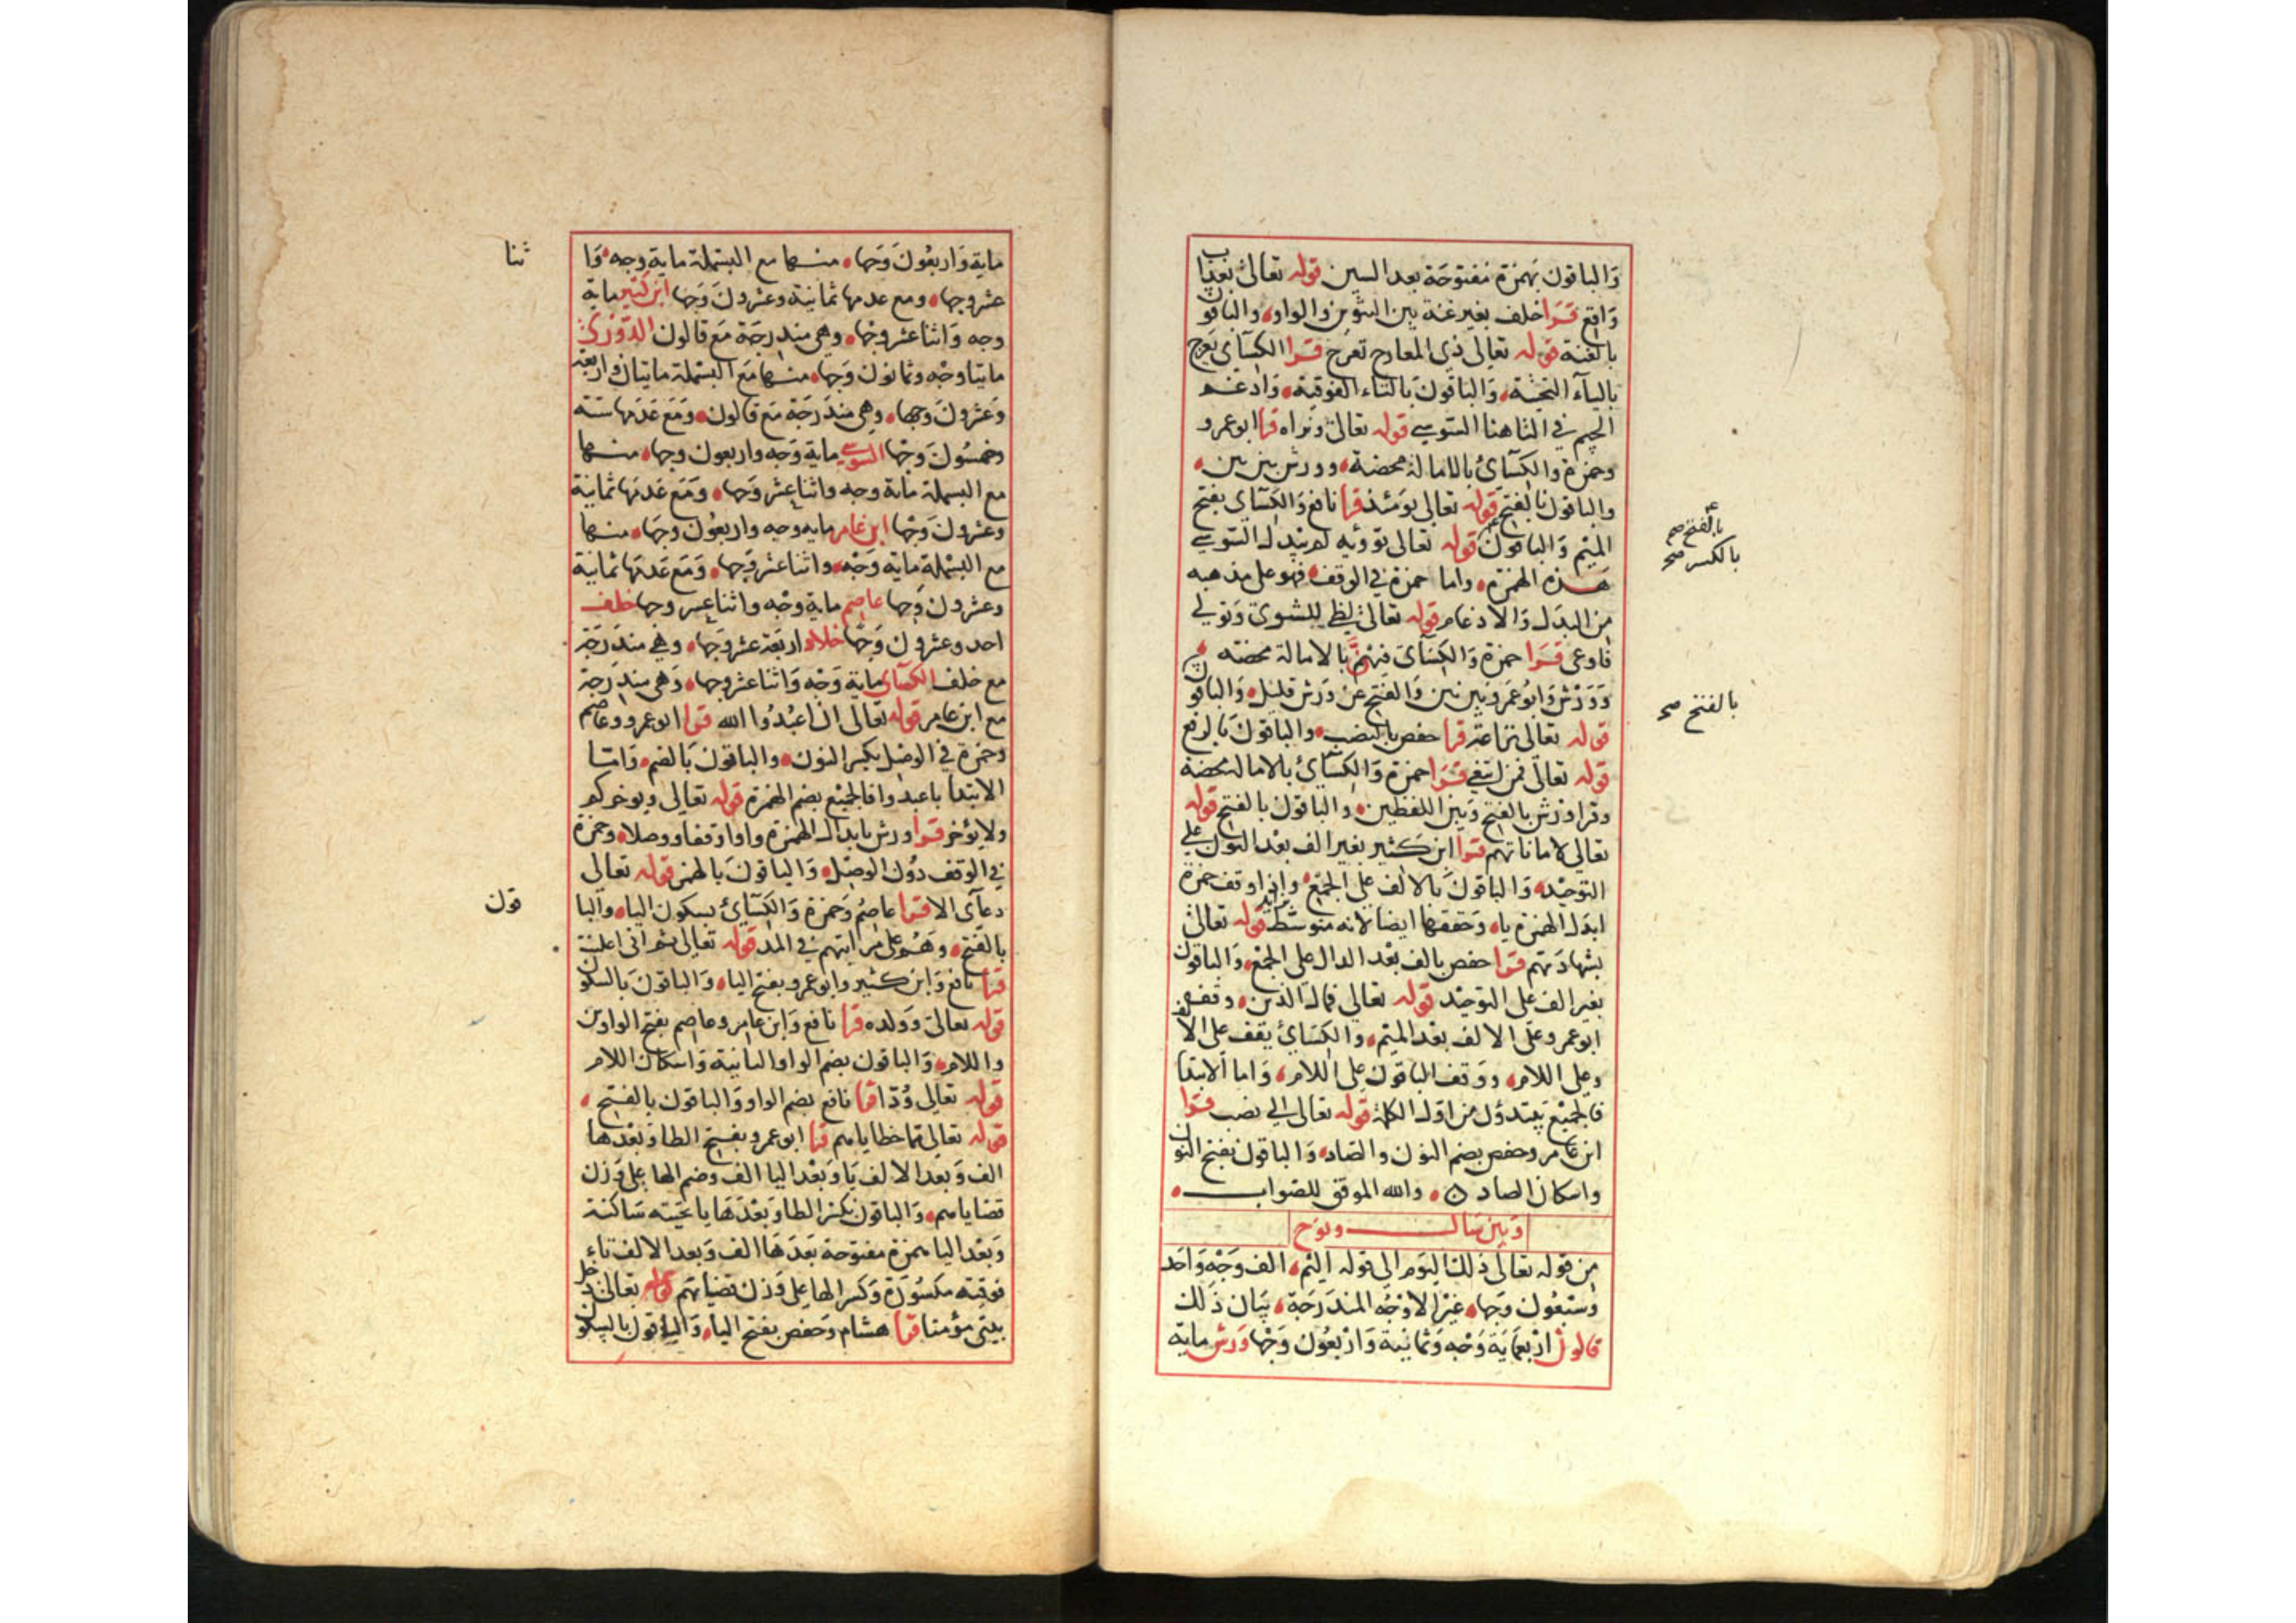 والباقون بهمزة مفتوحة بعد السين قوله تعالى بعذاب
واقع قرا خلف بغير غنة بين التنوين والواو والباقون
بالغنة قوله تعالى ذي المعارج تعرج قرا الكسآى يعرج
باليآء التحتية والباقون بالتاء الفوقية وادغم
الجيم في التا هنا السوسي قوله تعالى ونراه قرا ابو عمرو
وحمزة والكسآئ بالامالة محضة وورش بين بين
والباقون بالفتح قوله تعالى يومئذ قرا نافع والكسآى بفتح
الميم والباقون قوله تعالى تؤويه لم يبدل السوسي
هذه الهمزة واما حمزة في الوقف فهو على مذهبه
من البدل والادغام قوله تعالى لظى للشوى وتولى
فاوعى قرا حمزة والكسآى فيهن بالامالة محضة
وورش وابو عمرو بين بين والفتح عن ورش قليل والباقون
قوله تعالى نزاعة قرا حفص بالنصب والباقون بالرفع
قوله تعالى فمن ابتغى قرا حمزة والكسآئ بالامالة محضة
وقرا ورش بالفتح وبين اللفظين والباقون بالفتح قوله
تعالى لاماناتهم قرا ابن كثير بغير الف بعد النون على
التوحيد والباقون بالالف على الجمع واذا وقف حمزة
ابدل الهمزة يا وحققها ايضا لانه متوسط بزايد قوله تعالى
بشهادتهم قرا حفص بالف بعد الدال على الجمع والباقون
بغير الف على التوحيد قوله تعالى فمال الذين وقف
ابو عمرو على الالف بعد الميم والكسائ يقف على الالف
وعلى اللام ووقف الباقون على اللام واما الابتدا
فالجميع يبتدؤن من اول الكلمة قوله تعالى الى نصب قرا
ابن عامر وحفص بضم النون والصاد والباقون بفتح النون
واسكان الصاد والله الموفق للصواب
وبين سال ونوح
من قوله تعالى ذلك اليوم الى قوله اليم الف وجه واحد
وسبعون وجها غير الاوجه المندرجة بيان ذلك
قالون اربعماية وجه وثمانية واربعون وجها ورش ماية
بالفتح صح
بالكسر صح
بالفتح صح
ماية واربعون وجها منها مع البسملة ماية وجه وا
ثنا
عشر وجها ومع عدمها ثمانية وعشرون وجها ابن كثير ماية
وجه واثنا عشر وجها وهي مندرجة مع قالون الدوري
مايتا وجه وثمانون وجها منها مع البسملة مايتان واربعة
وعشرون وجها وهي مندرجة مع قالون ومع عدمها ستة
وخمسون وجها السوسي ماية وجه واربعون وجها منها
مع البسملة ماية وجه واثنا عشر وجها ومع عدمها ثمانية
وعشرون وجها ابن عامر مايه وجه واربعون وجها منها
مع البسملة ماية وجه واثنا عشر وجها ومع عدمها ثمانية
وعشرون وجها عاصم ماية وجه واثنا عشر وجها خلف
احد وعشرون وجها خلاد اربعة عشر وجها وهي مندرجة
مع خلف الكسآى ماية وجه واثنا عشر وجها وهي مندرجة
مع ابن عامر قوله تعالى ان اعبدوا الله قرا ابو عمرو وعاصم
وحمزة في الوصل بكسر النون والباقون بالضم واما
الابتدا باعبدوا فالجميع بضم الهمزة قوله تعالى ويوخركم
ولا يؤخر قرا ورش بابدال الهمزة واوا وقفا ووصلا وحمزة
في الوقف دون الوصل والباقون بالهمز قوله تعالى
دعآى الا قرا عاصم وحمزة والكسآئ بسكون اليا والبا
قون
بالفتح وهم على مراتبهم في المد قوله تعالى ثم انى اعلنت
قرا نافع وابن كثير وابو عمرو بفتح اليا والباقون بالسكون
قوله تعالى وولده قرا نافع وابن عامر وعاصم بفتح الواوين
واللام والباقون بضم الواو الثانية واسكان اللام
قوله تعالى ودا قرا نافع بضم الواو والباقون بالفتح
قوله تعالى مما خطاياهم قرا ابو عمرو بفتح الطا وبعدها
الف وبعد الالف يا وبعد اليا الف وضم الها على وزن
قضاياهم والباقون بكسر الطا وبعدها يا تحتيه ساكنة
وبعد اليا همزة مفتوحة بعدها الف وبعد الالف تاء
فوقيه مكسورة وكسر الها على وزن قضياتهم قوله تعالى دخل
بيتى مؤمنا قرا هشام وحفص بفتح اليا والباقون بالسكون